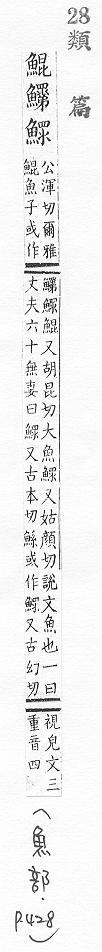 28
類篇
鯤𩹎鰥
公渾切爾雅
鯤魚子或作
鰥鯤又胡昆切大魚鰥又姑頑切說文魚也一曰
丈夫六十無妻曰鰥又古本切鯀或作鰥又古幻切
視皃文三
重音四
(魚部.
P428)